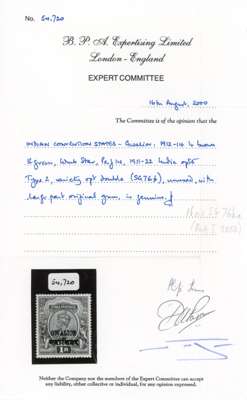 No. 54,720
B. P. A. Expertising Limited
London - England
EXPERT COMMITTEE
16th August, 2000
The Committee is of the opinion that the
INDIAN CONVENTION STATES - GWALIOR: 1912-14 1r brown
& green, Wmk Star, Perf 14, 1911-22 India optd
Type 2, variety opt double (SG76a), unused, with
large part original gum, is genuine.
54,720
INDIA POSTAGE
GWALIOR
Neither the Company nor the members of the Expert Committee can accept
any liability, either collective or individual, for any opinion expressed.